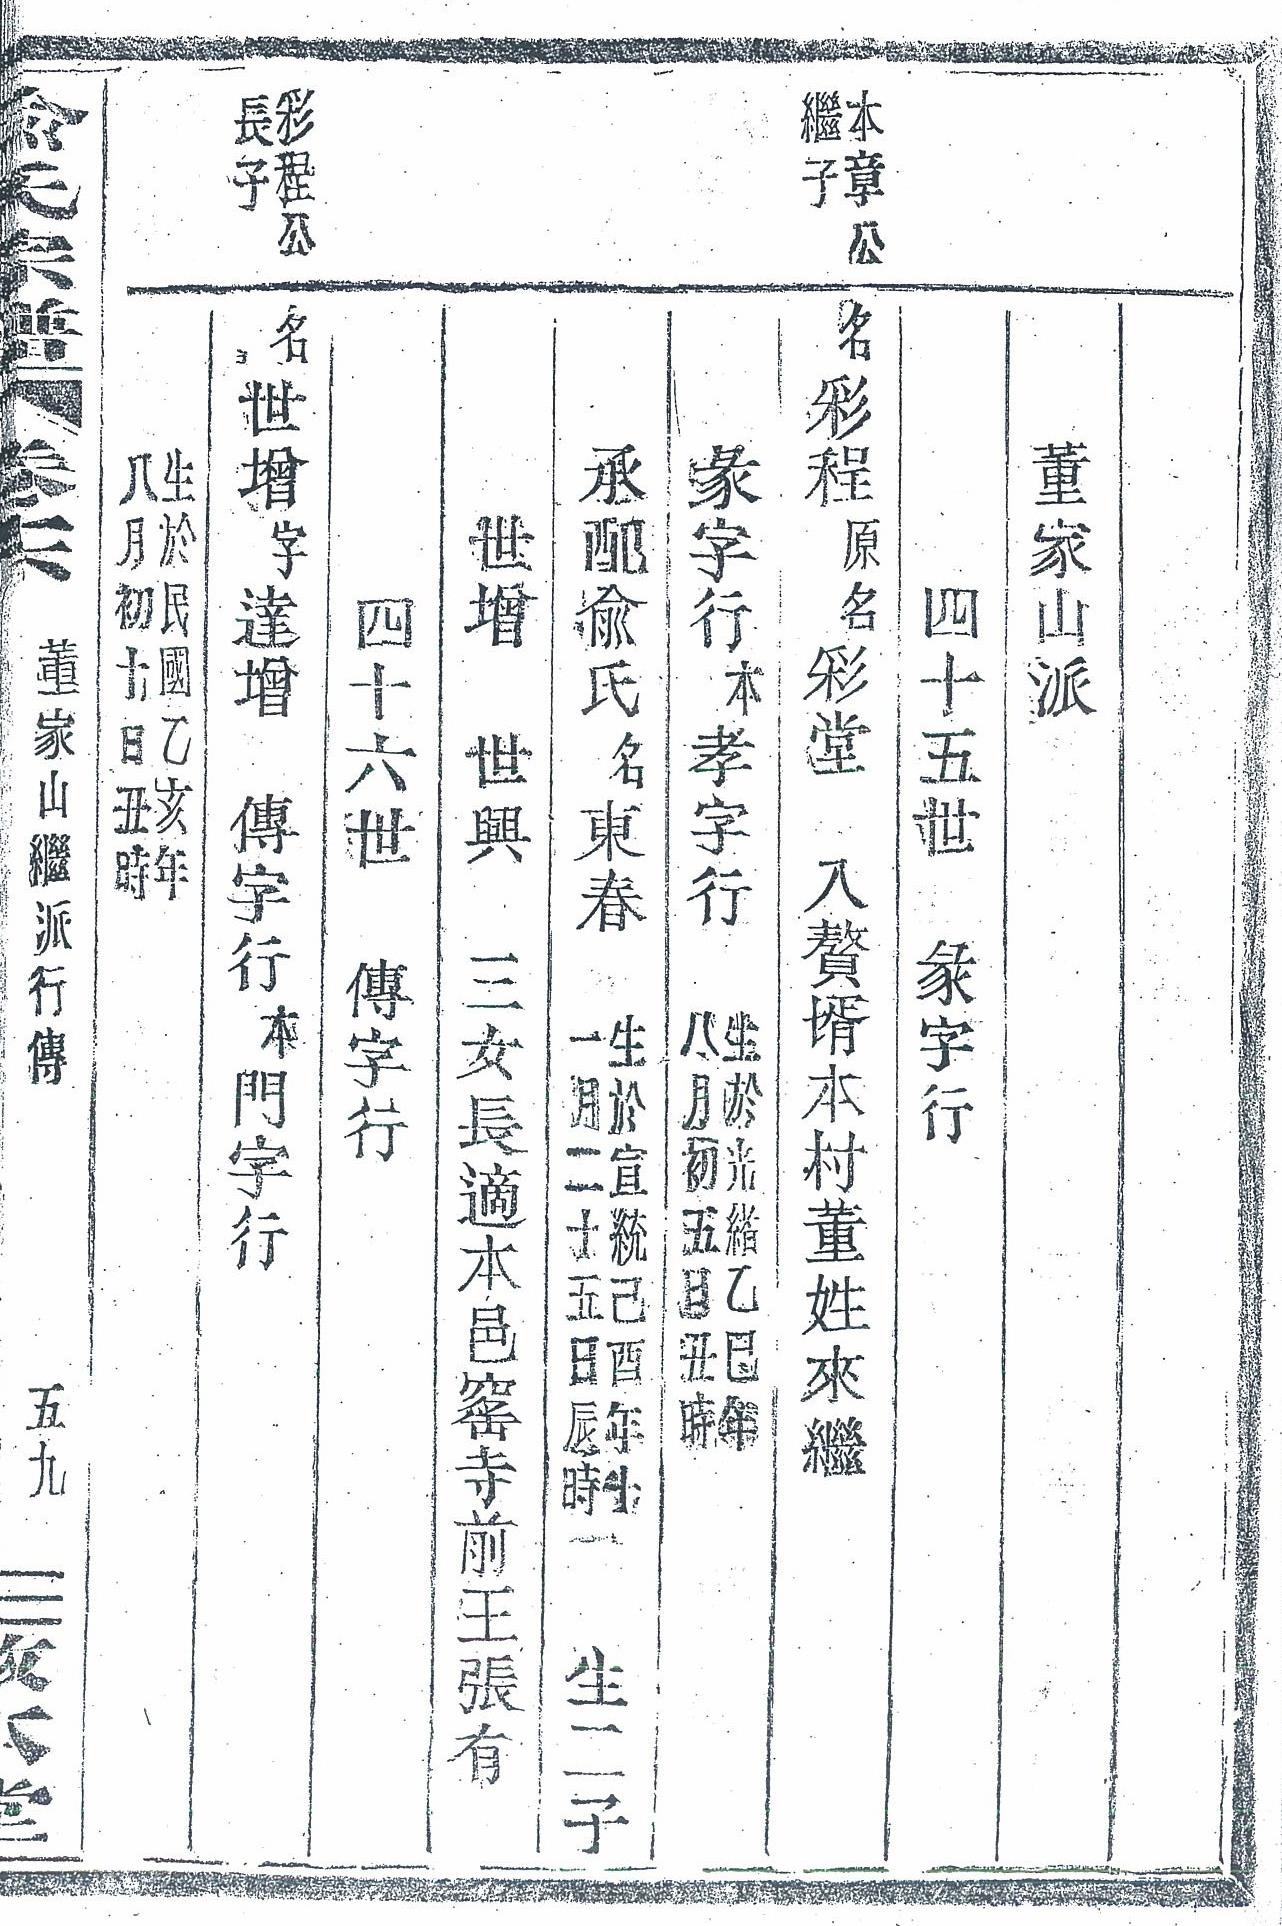 董家山派
四十五世 彖字行
本章公
繼子
名彩程原名彩堂 入贅壻本村董姓來繼
彖字行本孝字行 生於光緒乙巳年
八月初五日丑時
承配俞氏名東春 生於宣統己酉年十
一月二十五日辰時 生二子
世增 世興 三女長適本邑窰寺前王張有
四十六世 傳字行
彩程公
長子
名世增字達增 傳字行本門字行
生於民國乙亥年
八月初十日丑時
俞氏宗譜 卷六 董家山繼派行傳 五九 三敬堂